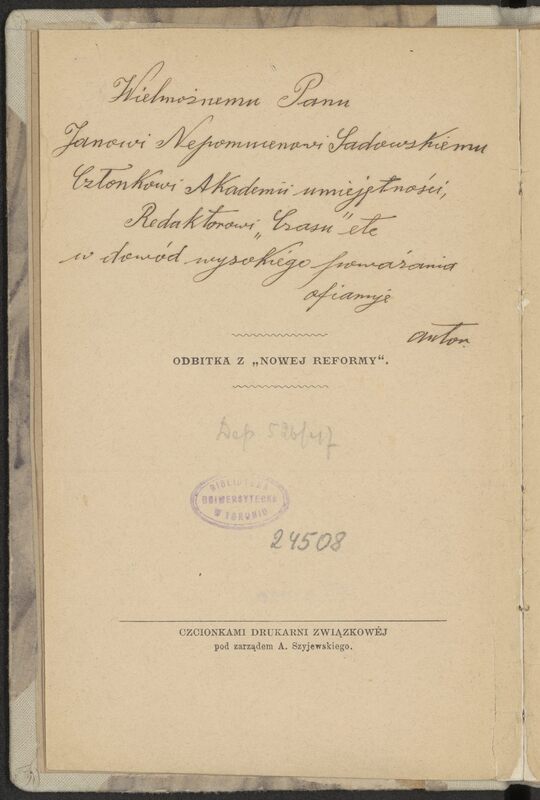 Wielmożnemu Panu
Janowi Nepomucenowi Sadowskiemu
Członkowi Akademii umiejętności,
Redaktorowi „Czasu" etc
w dowód wysokiego poważania
ofiaruje
autor.
ODBITKA Z „NOWEJ REFORMY“.
Dep
BIBLIOTEKA
UNIWERSYTECKA
W TORUNIU
24508
CZCIONKAMI DRUKARNI ZWIĄZKOWÉJ
pod zarządem A. Szyjewskiego.